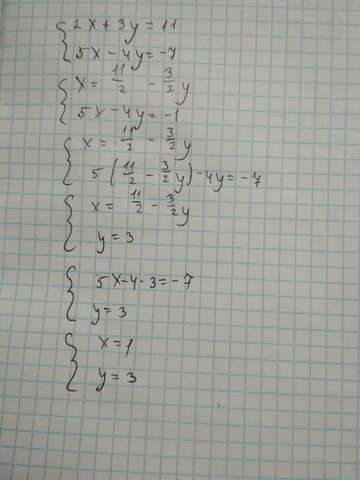 2x + 3y = 11
5x - 4y = -7
x = 11/2 - 3/2 y
5x - 4y = -1
x = 11/2 - 3/2 y
5(11/2 - 3/2 y) - 4y = -7
x = 11/2 - 3/2 y
y = 3
5x - 4 · 3 = -7
y = 3
x = 1
y = 3